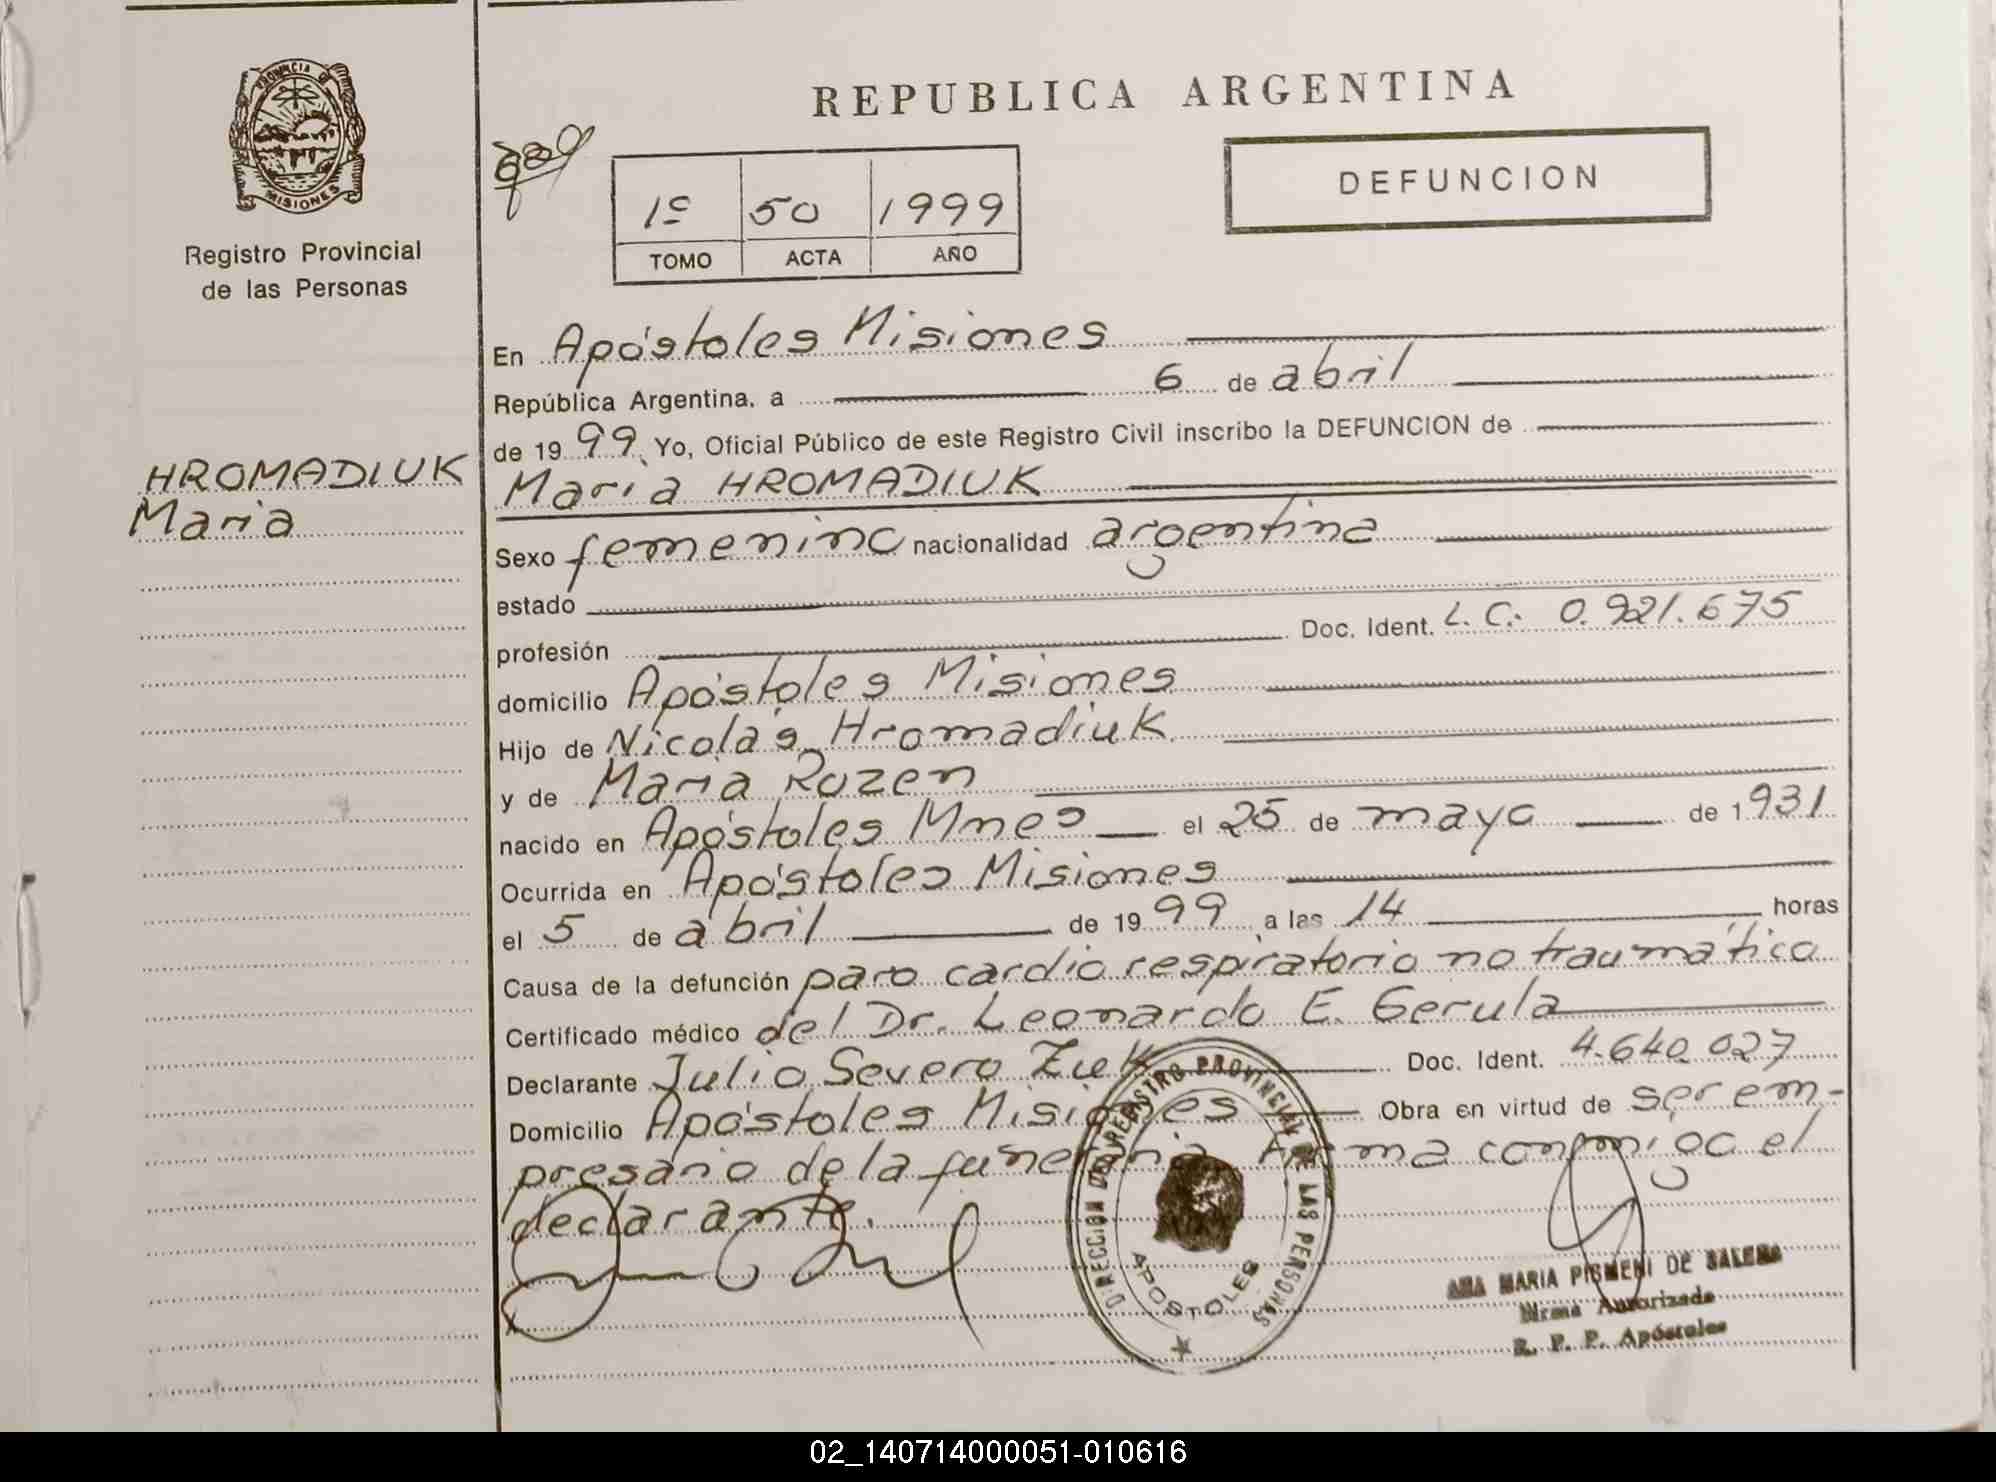 PROVINCIA DE
MISIONES
Registro Provincial
de las Personas
HROMADIUK
Maria
REPUBLICA ARGENTINA
DEFUNCION
1º 50 1999
TOMO ACTA AÑO
En Apóstoles Misiones
República Argentina, a 6 de abril
de 1999. Yo, Oficial Público de este Registro Civil inscribo la DEFUNCION de
Maria HROMADIUK
Sexo femenino nacionalidad argentina
estado
profesión Doc. Ident. L.C. 0.921.675
domicilio Apóstoles Misiones
Hijo de Nicolás Hromadiuk
y de Maria Rozen
nacido en Apóstoles Mnes el 25 de mayo de 1931
Ocurrida en Apóstoles Misiones
el 5 de abril de 1999 a las 14 horas
Causa de la defunción paro cardio respiratorio no traumático
Certificado médico del Dr. Leonardo E. Gerula
Declarante Julio Severo Zuk Doc. Ident. 4.640.027
Domicilio Apóstoles Misiones Obra en virtud de ser em-
presario de la funeraria. Firma conmigo el
declarante.
DIRECCION DEL REGISTRO PROVINCIAL DE LAS PERSONAS
APOSTOLES
ANA MARIA PISMENI DE
Firma Autorizada
R. P. P. Apóstoles
02_140714000051-010616